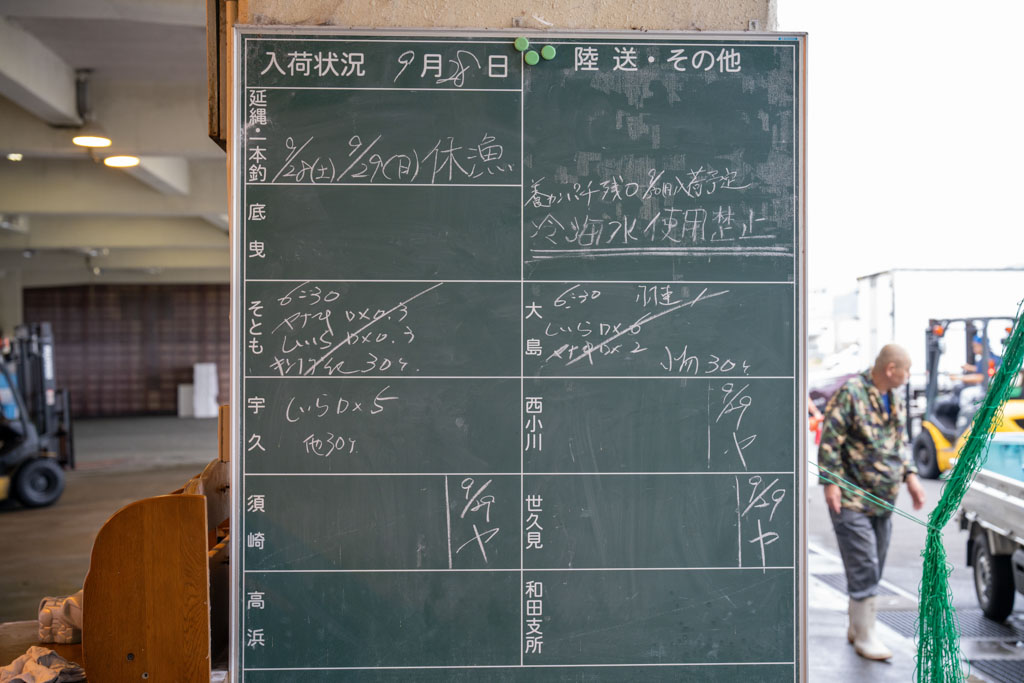 入荷状況 9月28日
陸送・その他
延縄・一本釣
9/28(土) 9/29(日) 休漁
養カンパチ残0 入荷予定
冷海水使用禁止
底曳
そとも
6:30
ヤナギD×0.3
しいらD×0.3
30ケ.
大島
6:30
しいらD×6
D×2
小物30ケ
宇久
しいらD×5
他30ケ
西小川
9/29
ヤ
須崎
9/29
ヤ
世久見
9/29
ヤ
高浜
和田支所